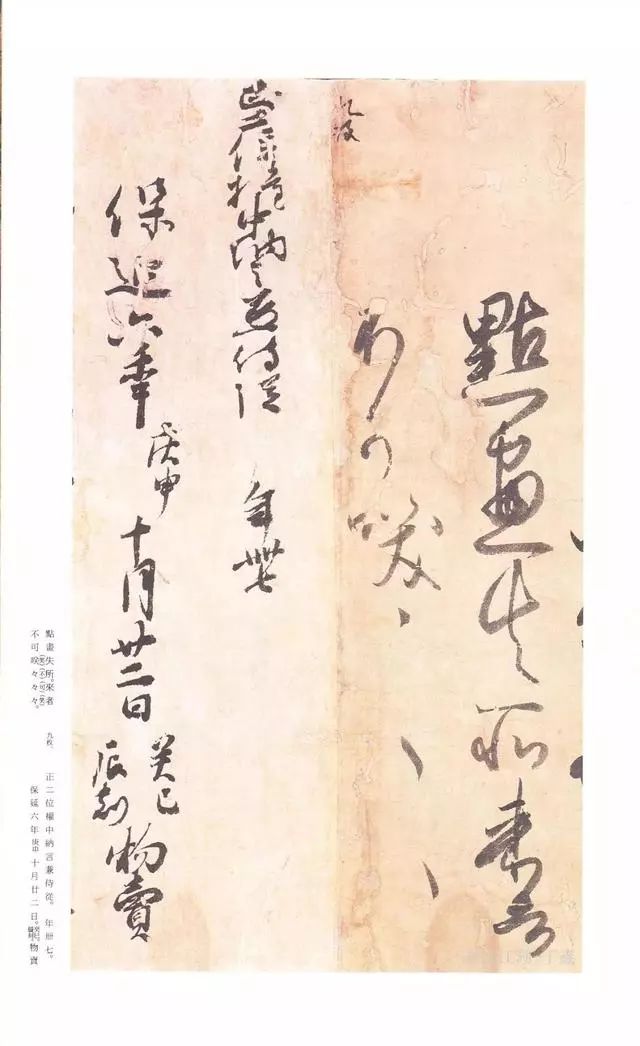 點畫失所來者
不可咲々々々
九枚
正二位權中納言兼侍從　年卅七
保延六年庚申十月廿二日癸巳辰刻物賣
點畫失所。來者
不可咲々々々。
九枚、
正二位權中納言兼侍從。年卅七。
保延六年庚申十月廿二日。物賣